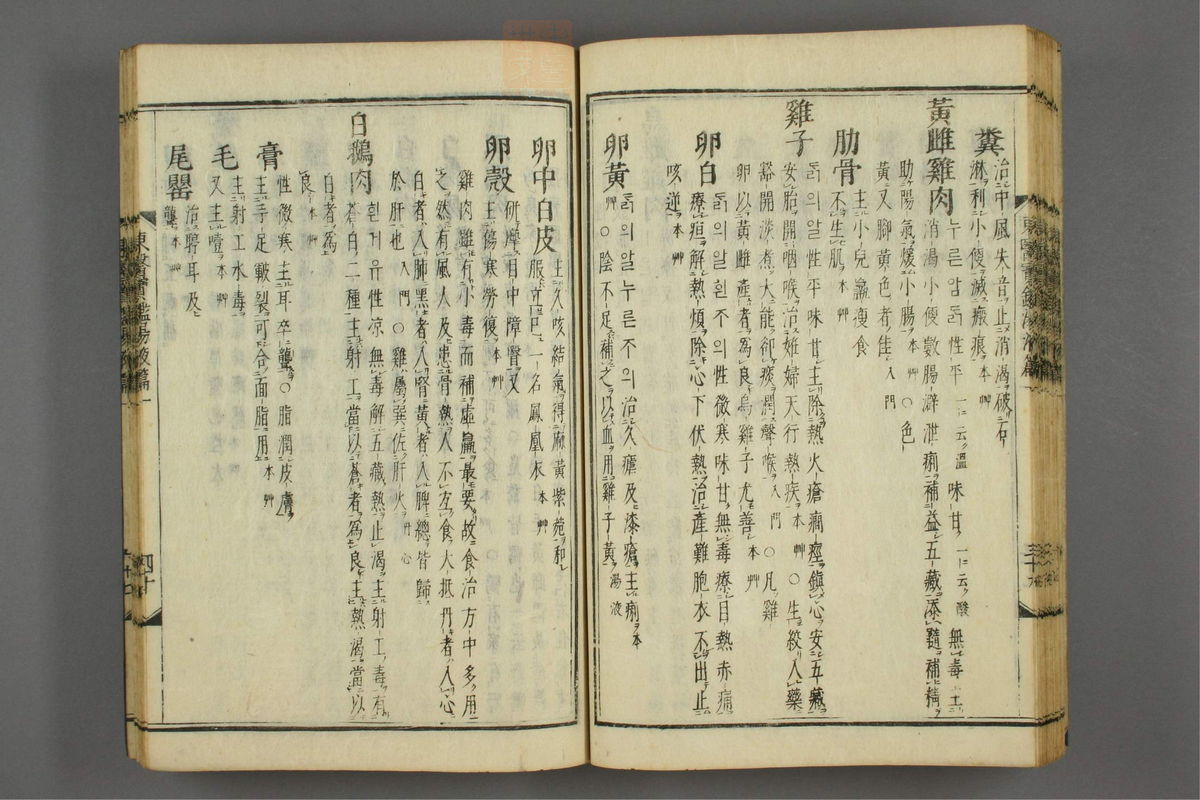 糞 治中風失音止消渴破石
淋利小便滅瘢痕本艸
黃雌雞肉 누른암ᄃᆞᆰ性平一云溫味甘一云酸無毒主
消渴小便數腸澼泄痢補益五藏添髓補精
助陽氣煖小腸本艸○色
黃又脚黃色者佳入門
肋骨 主小兒羸瘦食
不生肌本艸
雞子 ᄃᆞᆰ의알性平味甘主除熱火瘡癎痙鎭心安五藏
安胎開咽喉治姙婦天行熱疾本艸○生絞入藥
豁開淡煮大能卻痰潤聲喉入門○凡雞
卵以黃雌產者為良烏雞子尤善本艸
卵白 ᄃᆞᆰ의알흰ᄌᆞ의性微寒味甘無毒療目熱赤痛
療疸解熱煩除心下伏熱治產難胞衣不出止
咳逆本艸
卵黃 ᄃᆞᆰ의알누른ᄌᆞ의治久瘧及漆瘡主痢本
艸○陰不足補之以血用雞子黃湯液
卵中白皮 主久咳結氣得麻黃紫菀和
服立已一名鳳凰衣本艸
卵殼 研摩目中障瞖又
主傷寒勞復本艸
雞肉雖有小毒而補虛羸最要故食治方中多用
之然有風人及患骨熱人不宜食大抵丹者入心
白者入肺黑者入腎黃者入脾總皆歸
於肝也入門○雞屬巽佐肝火丹心
白鵝肉 흰거유性凉無毒解五藏熱止渴主射工毒有
蒼白二種主射工當以蒼者為良主熱渴當以
白者為
良本艸
膏 性微寒主耳卒聾○脂潤皮膚
主手足皸裂可合面脂用本艸
毛 主射工水毒
又主噎本艸
尾罌 治聤耳及
聾本艸
東醫寶鑑湯液篇一
四十